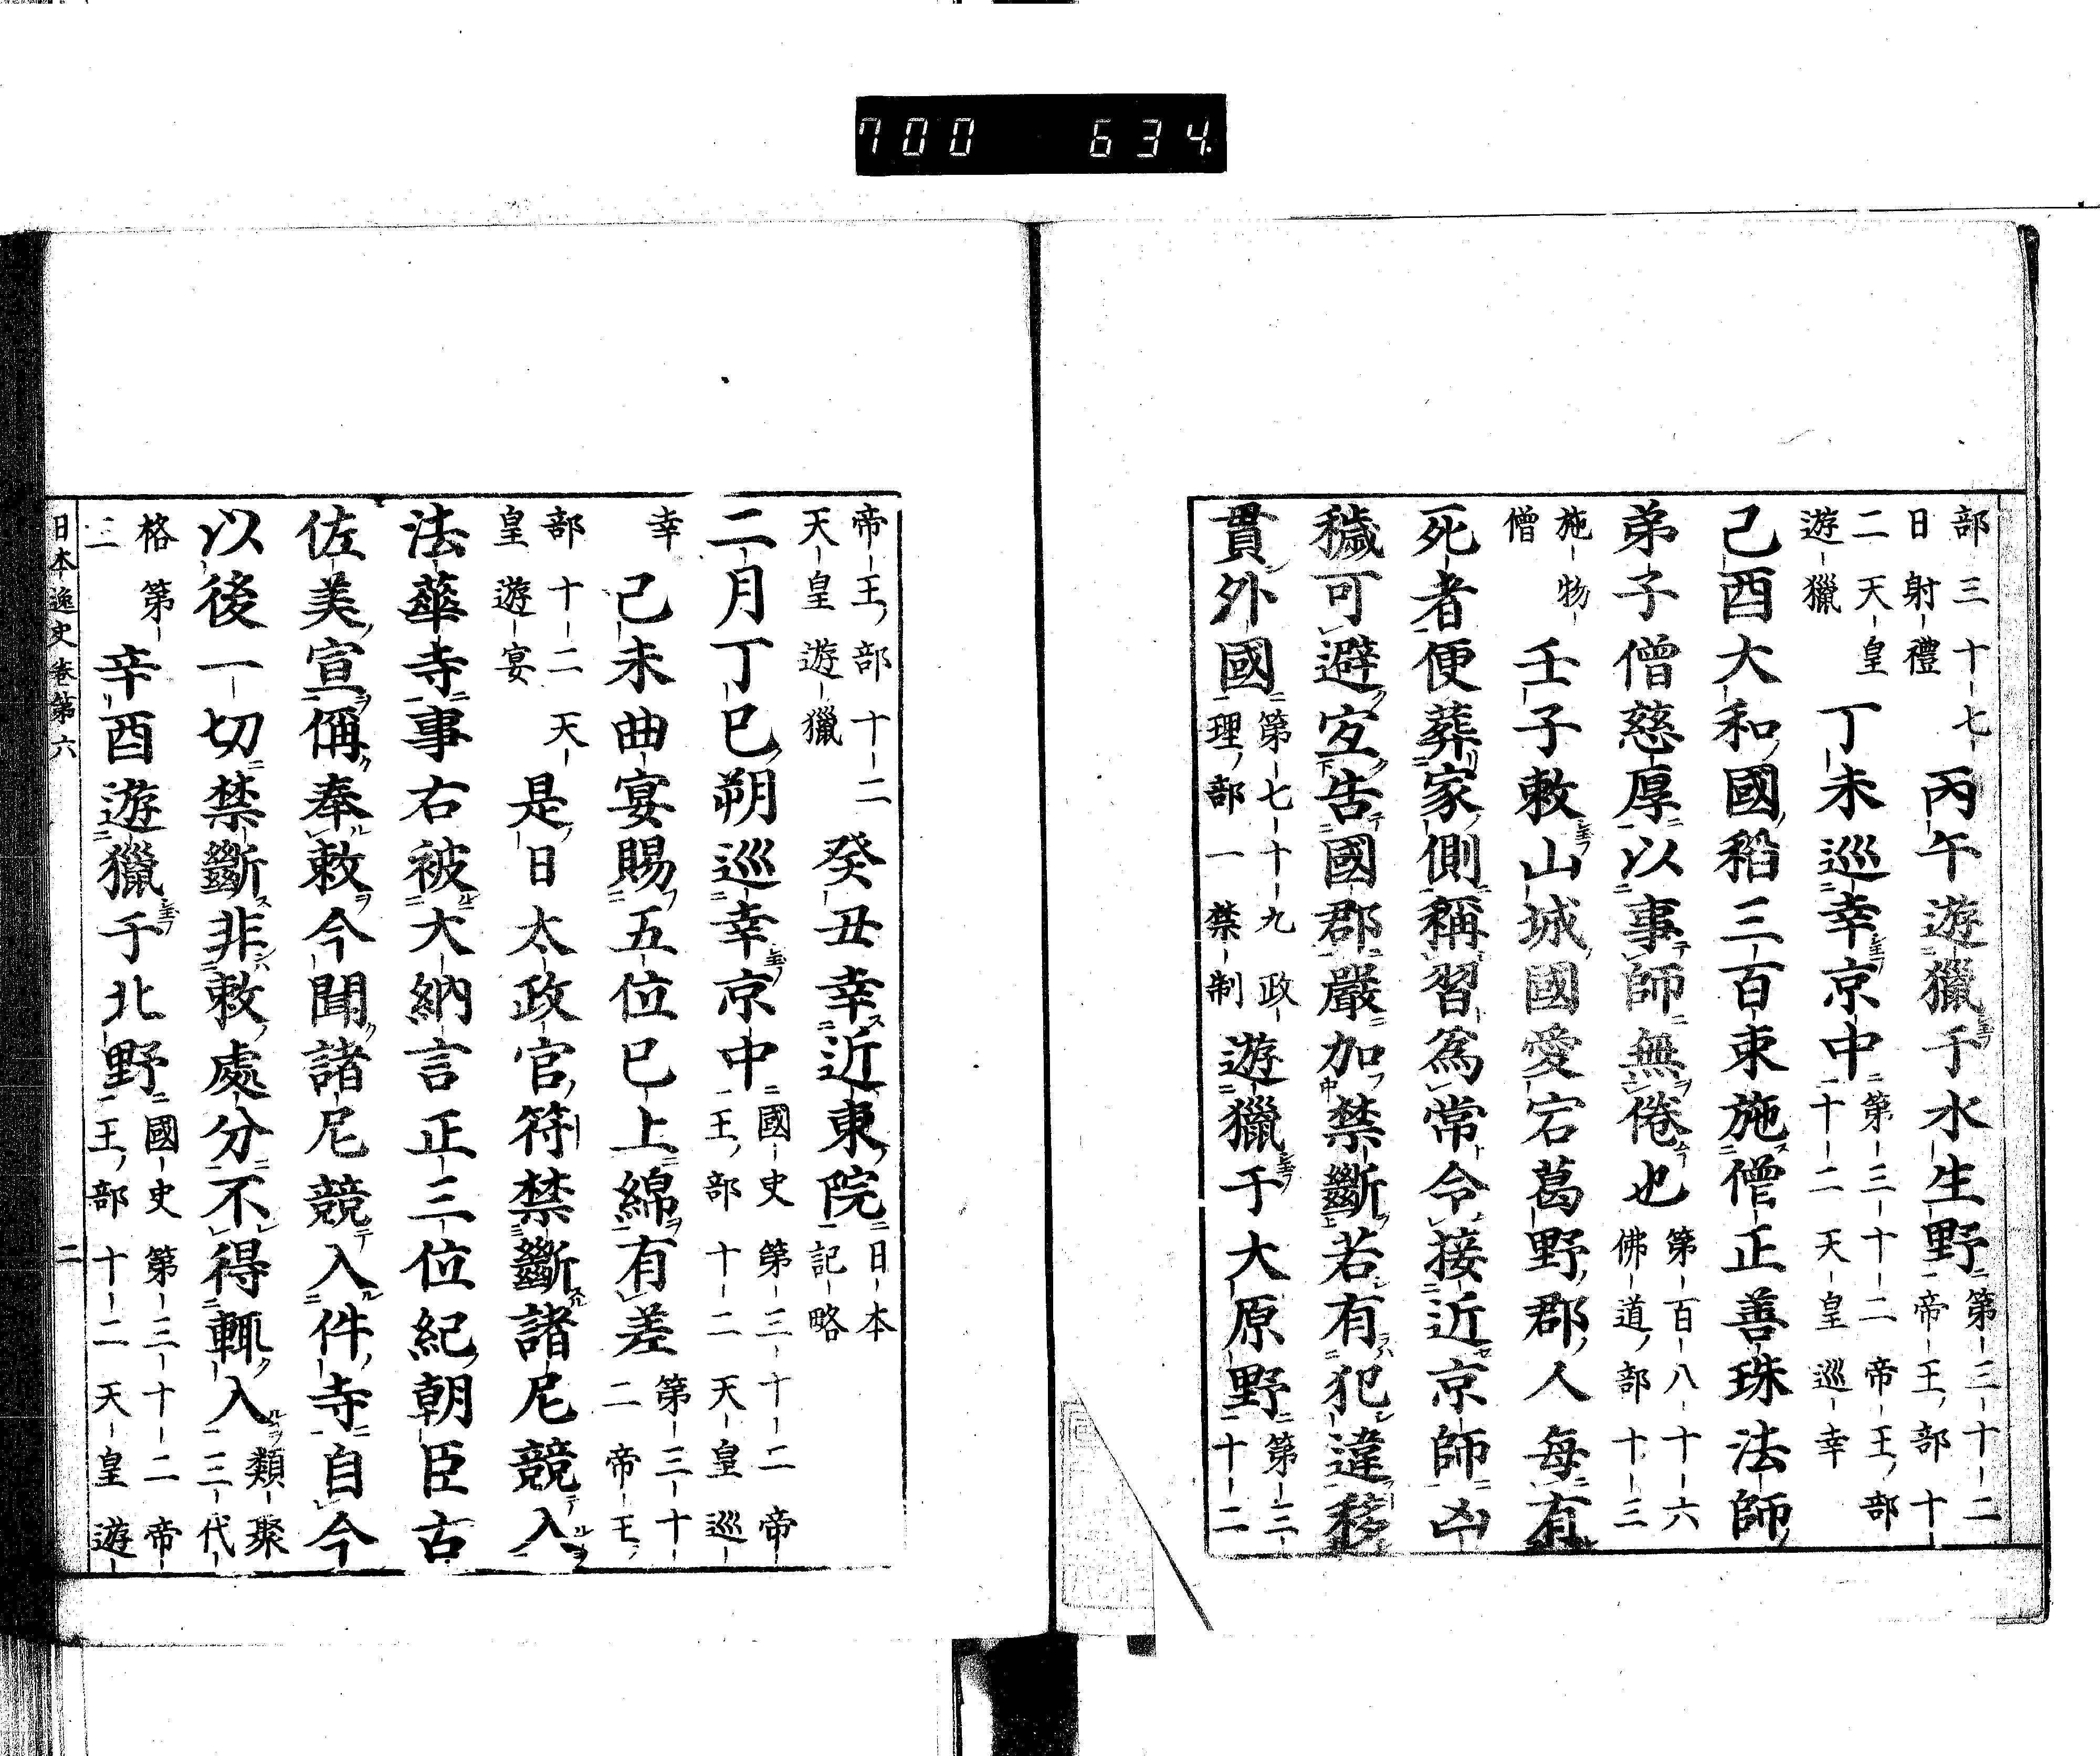 700 634
部三十七日射禮 丙午遊獵于水生野第三十二帝王部十
二天皇遊獵 丁未巡幸京中第三十二帝王部十二天皇巡幸
己酉大和國稻三百束施僧正善珠法師
弟子僧慈厚以事師無倦也第百八十六佛道部十三
施物僧 壬子敕山城國愛宕葛野郡人每有
死者便葬家側稱習爲常今接近京師凶
穢可避宜告國郡嚴加禁斷若有犯違移
貫外國第七十九政理部一禁制 遊獵于大原野第三十二
帝王部十二天皇遊獵 癸丑幸近東院日本記略
二月丁巳朔巡幸京中國史第三十二帝王部十二天皇巡
幸 己未曲宴賜五位已上綿有差第三十二帝王
部十二天皇遊宴 是日太政官符禁斷諸尼競入
法華寺事右被大納言正三位紀朝臣古
佐美宣偁奉敕今聞諸尼競入件寺自今
以後一切禁斷非敕處分不得輙入類聚三代
格第三 辛酉遊獵于北野國史第三十二帝王部十二天皇遊
日本逸史卷第六 二